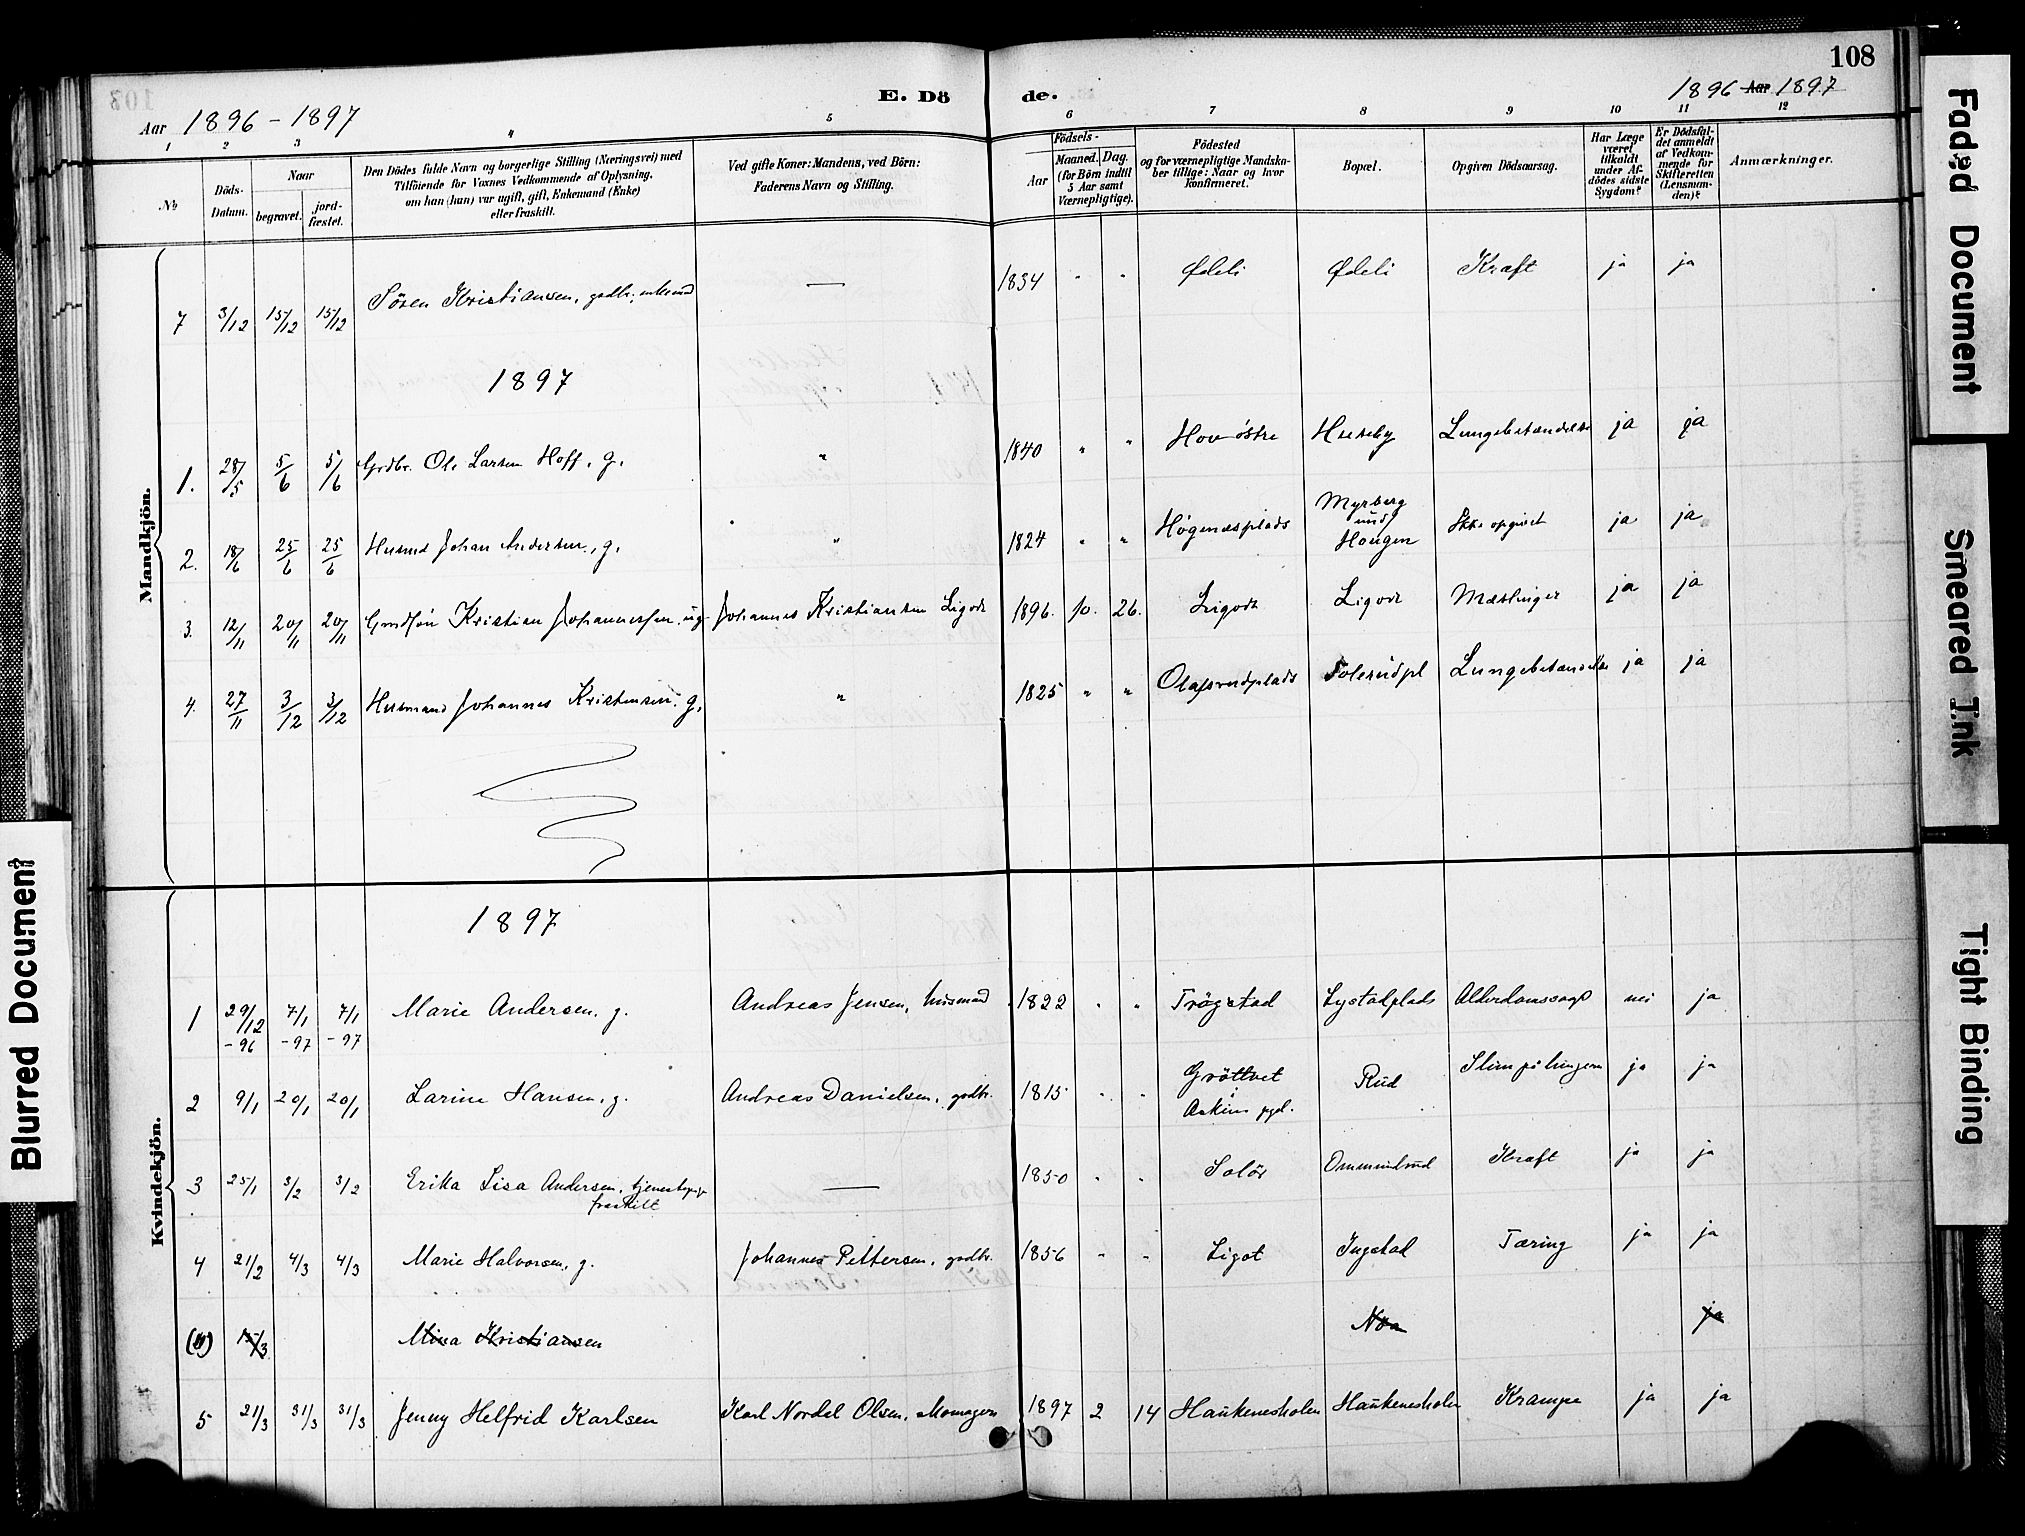 108
E. Döde.
Aar 1896 - 1897
1896 Aar 1897
1 2 3 4 5 6 7 8 9 10 11 12
No
Döds-Datum.
Naar
begravet.
jord-fæstet.
Den Dödes fulde Navn og borgerlige Stilling (Næringsvei) med
Tilföiende for Voxnes Vedkommende af Oplysning,
om han (hun) var ugift, gift, Enkemand (Enke)
eller fraskilt.
Ved gifte Koner: Mandens, ved Börn:
Faderens Navn og Stilling.
Födsels-
Aar
Maaned. Dag.
(for Börn indtil
5 Aar samt
Værnepligtige).
Födested
og for værnepligtige Mandska-
ber tillige: Naar og hvor
konfirmeret.
Bopæl.
Opgiven Dödsaarsag.
Har Læge
været
tilkaldt
under Af-
dödes sidste
Sygdom?
Er Dödsfal-
det anmeldt
af Vedkom-
mende for
Skifteretten
(Lensman-
den)?
Anmærkninger.
Mandkjön.
7 3/12 15/12 15/12 Sören Kristiansen, gødbr., enkemd — 1834 " " Ødeli Ødeli Kræft ja ja
1897
1. 28/5 5/6 5/6 Grdbr. Ole Larsen Hoff, g. " 1840 " " Hov østre Huseby Lungebetændelse ja ja
2. 18/6 25/6 25/6 Husmd Johan Andersen, g. " 1824 " " Høgenæsplads Myrberg und/ Hougen Ikke opgivet ja ja
3. 12/11 20/11 20/11 Grndsön Kristian Johannessen. ug. Johannes Kristiansen Ligodt 1896. 10. 26. Ligodt Ligodt Mæslinger ja ja
4. 27/11 3/12 3/12 Husmand Johannes Kristensen. g. " 1825 " " Olafsrudplads Folerudpl Lungebetændelse ja ja
Kvindekjön.
1897
1 29/12 -96 7/1 -97 7/1 -97 Marie Andersen, g. Andreas Jensen, husmand 1822 " " Trögstad Lystadplads Alderdomssvagh nei ja
2 9/1 20/1 20/1 Larine Hansen, g. Andreas Danielsen, grdbr. 1815 " " Gröttvet i Askim pgd. Rud Slim på lungern ja ja
3 25/1 3/2 3/2 Erika Lisa Andersen, tjenestepige fraskilt — 1850 " " Solör Ommundrud Kræft ja ja
4 21/2 4/3 4/3 Marie Halvorsen, g. Johannes Pettersen, grdbr. 1856 " " Ligot Ingstad Tæring ja ja
15/3 Mina Kristiansen Noa ja
5 21/3 31/3 31/3 Jenny Helfrid Karlsen Karl Nordal Olsen, skomager 1897 2 14 Haukenesholen Haukenesholen Krampe ja ja
Faded Document
Smeared Ink
Tight Binding
Blurred Document